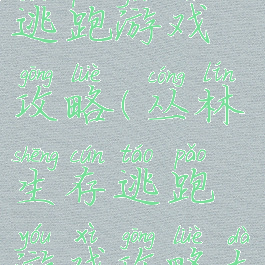 逃跑游戏
gōng lüè cóng lín
攻略(丛林
shēng cún táo pǎo
生存逃跑
yóu xì gōng lüè dà
游戏攻略大